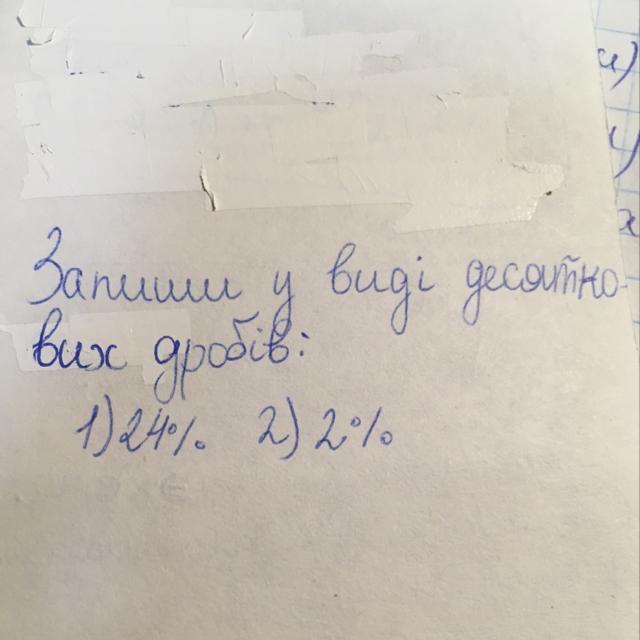 Запиши у виді десятко-
вих дробів:
1) 24% 2) 2%